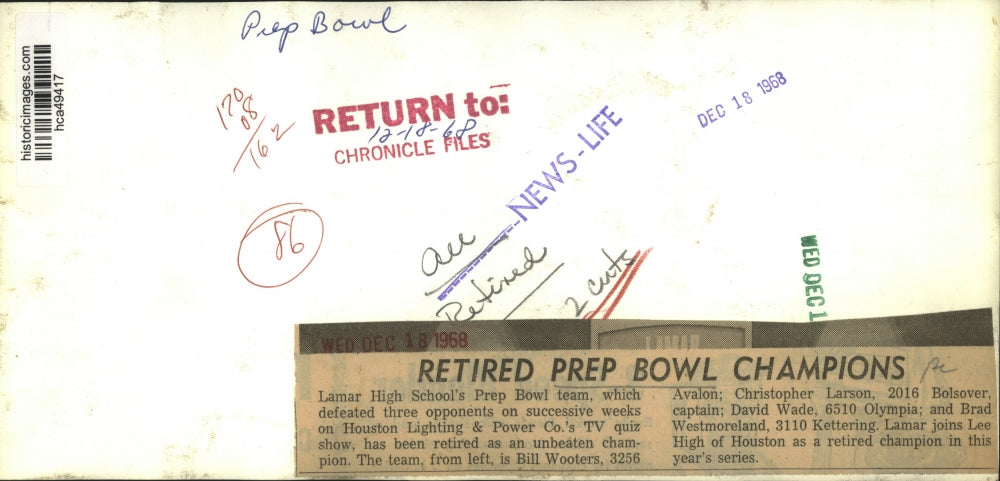 Prep Bowl
historicimages.com
hca49417
170
08
162
RETURN to:
12-18-68
CHRONICLE FILES
NEWS-LIFE
DEC 18 1968
86
All
Retired
2 cuts
WED DEC 1
WED. DEC 18 1968
LAMAR
RETIRED PREP BOWL CHAMPIONS
Lamar High School's Prep Bowl team, which
defeated three opponents on successive weeks
on Houston Lighting & Power Co.'s TV quiz
show, has been retired as an unbeaten cham-
pion. The team, from left, is Bill Wooters, 3256
Avalon; Christopher Larson, 2016 Bolsover,
captain; David Wade, 6510 Olympia; and Brad
Westmoreland, 3110 Kettering. Lamar joins Lee
High of Houston as a retired champion in this
year's series.